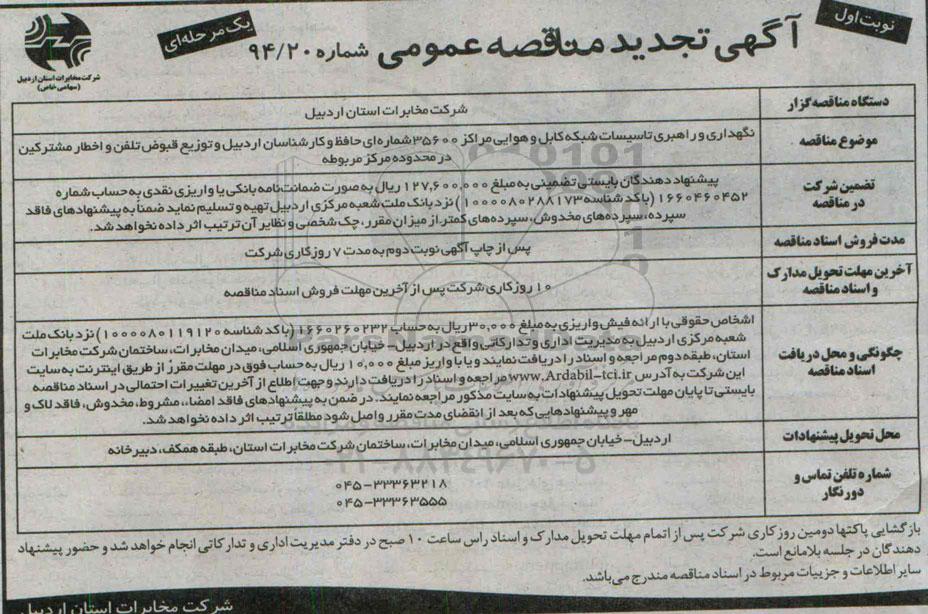 نوبت اول
آگهی تجدید مناقصه عمومی شماره ۹۴/۲۰
یک مرحله‌ای
شرکت مخابرات استان اردبیل
(سهامی خاص)
دستگاه مناقصه‌گزار
شرکت مخابرات استان اردبیل
موضوع مناقصه
نگهداری و راهبری تاسیسات شبکه کابل و هوایی مراکز ۳۵۶۰۰ شماره‌ای حافظ و کارشناسان اردبیل و توزیع قبوض تلفن و اخطار مشترکین
در محدوده مرکز مربوطه
تضمین شرکت
در مناقصه
پیشنهاد دهندگان بایستی تضمینی به مبلغ ۱۲۷,۶۰۰,۰۰۰ ریال به صورت ضمانت‌نامه بانکی یا واریزی نقدی به حساب شماره
۱۶۶۰۴۶۰۴۵۲ (با کد شناسه ۱۰۰۰۰۸۰۲۸۸۱۷۳) نزد بانک ملت شعبه مرکزی اردبیل تهیه و تسلیم نماید ضمناً به پیشنهادهای فاقد
سپرده، سپرده‌های مخدوش، سپرده‌های کمتر از میزان مقرر، چک شخصی و نظایر آن ترتیب اثر داده نخواهد شد.
مدت فروش اسناد مناقصه
پس از چاپ آگهی نوبت دوم به مدت ۷ روز کاری شرکت
آخرین مهلت تحویل مدارک
و اسناد مناقصه
۱۰ روز کاری شرکت پس از آخرین مهلت فروش اسناد مناقصه
چگونگی و محل دریافت
اسناد مناقصه
اشخاص حقوقی با ارائه فیش واریزی به مبلغ ۳۰,۰۰۰ ریال به حساب ۱۶۶۰۲۶۰۲۳۲ (با کد شناسه ۱۰۰۰۰۸۰۱۱۹۱۲۰) نزد بانک ملت
شعبه مرکزی اردبیل به مدیریت اداری و تدارکاتی واقع در اردبیل - خیابان جمهوری اسلامی، میدان مخابرات، ساختمان شرکت مخابرات
استان، طبقه دوم مراجعه و اسناد را دریافت نمایند و یا با واریز مبلغ ۱۰,۰۰۰ ریال به حساب فوق در مهلت مقرر از طریق اینترنت به سایت
این شرکت به آدرس www.Ardabil-tci.ir مراجعه و اسناد را دریافت دارند و جهت اطلاع از آخرین تغییرات احتمالی در اسناد مناقصه
بایستی تا پایان مهلت تحویل پیشنهادات به سایت مذکور مراجعه نمایند. در ضمن به پیشنهادهای فاقد امضاء، مشروط، مخدوش، فاقد لاک و
مهر و پیشنهادهایی که بعد از انقضای مدت مقرر واصل شود مطلقاً ترتیب اثر داده نخواهد شد.
محل تحویل پیشنهادات
اردبیل - خیابان جمهوری اسلامی، میدان مخابرات، ساختمان شرکت مخابرات استان، طبقه همکف، دبیرخانه
شماره تلفن تماس و
دورنگار
۰۴۵-۳۳۳۶۳۲۱۸
۰۴۵-۳۳۳۶۳۵۵۵
بازگشایی پاکتها دومین روز کاری شرکت پس از اتمام مهلت تحویل مدارک و اسناد راس ساعت ۱۰ صبح در دفتر مدیریت اداری و تدارکاتی انجام خواهد شد و حضور پیشنهاد
دهندگان در جلسه بلامانع است.
سایر اطلاعات و جزییات مربوط در اسناد مناقصه مندرج می‌باشد.
شرکت مخابرات استان اردبیل